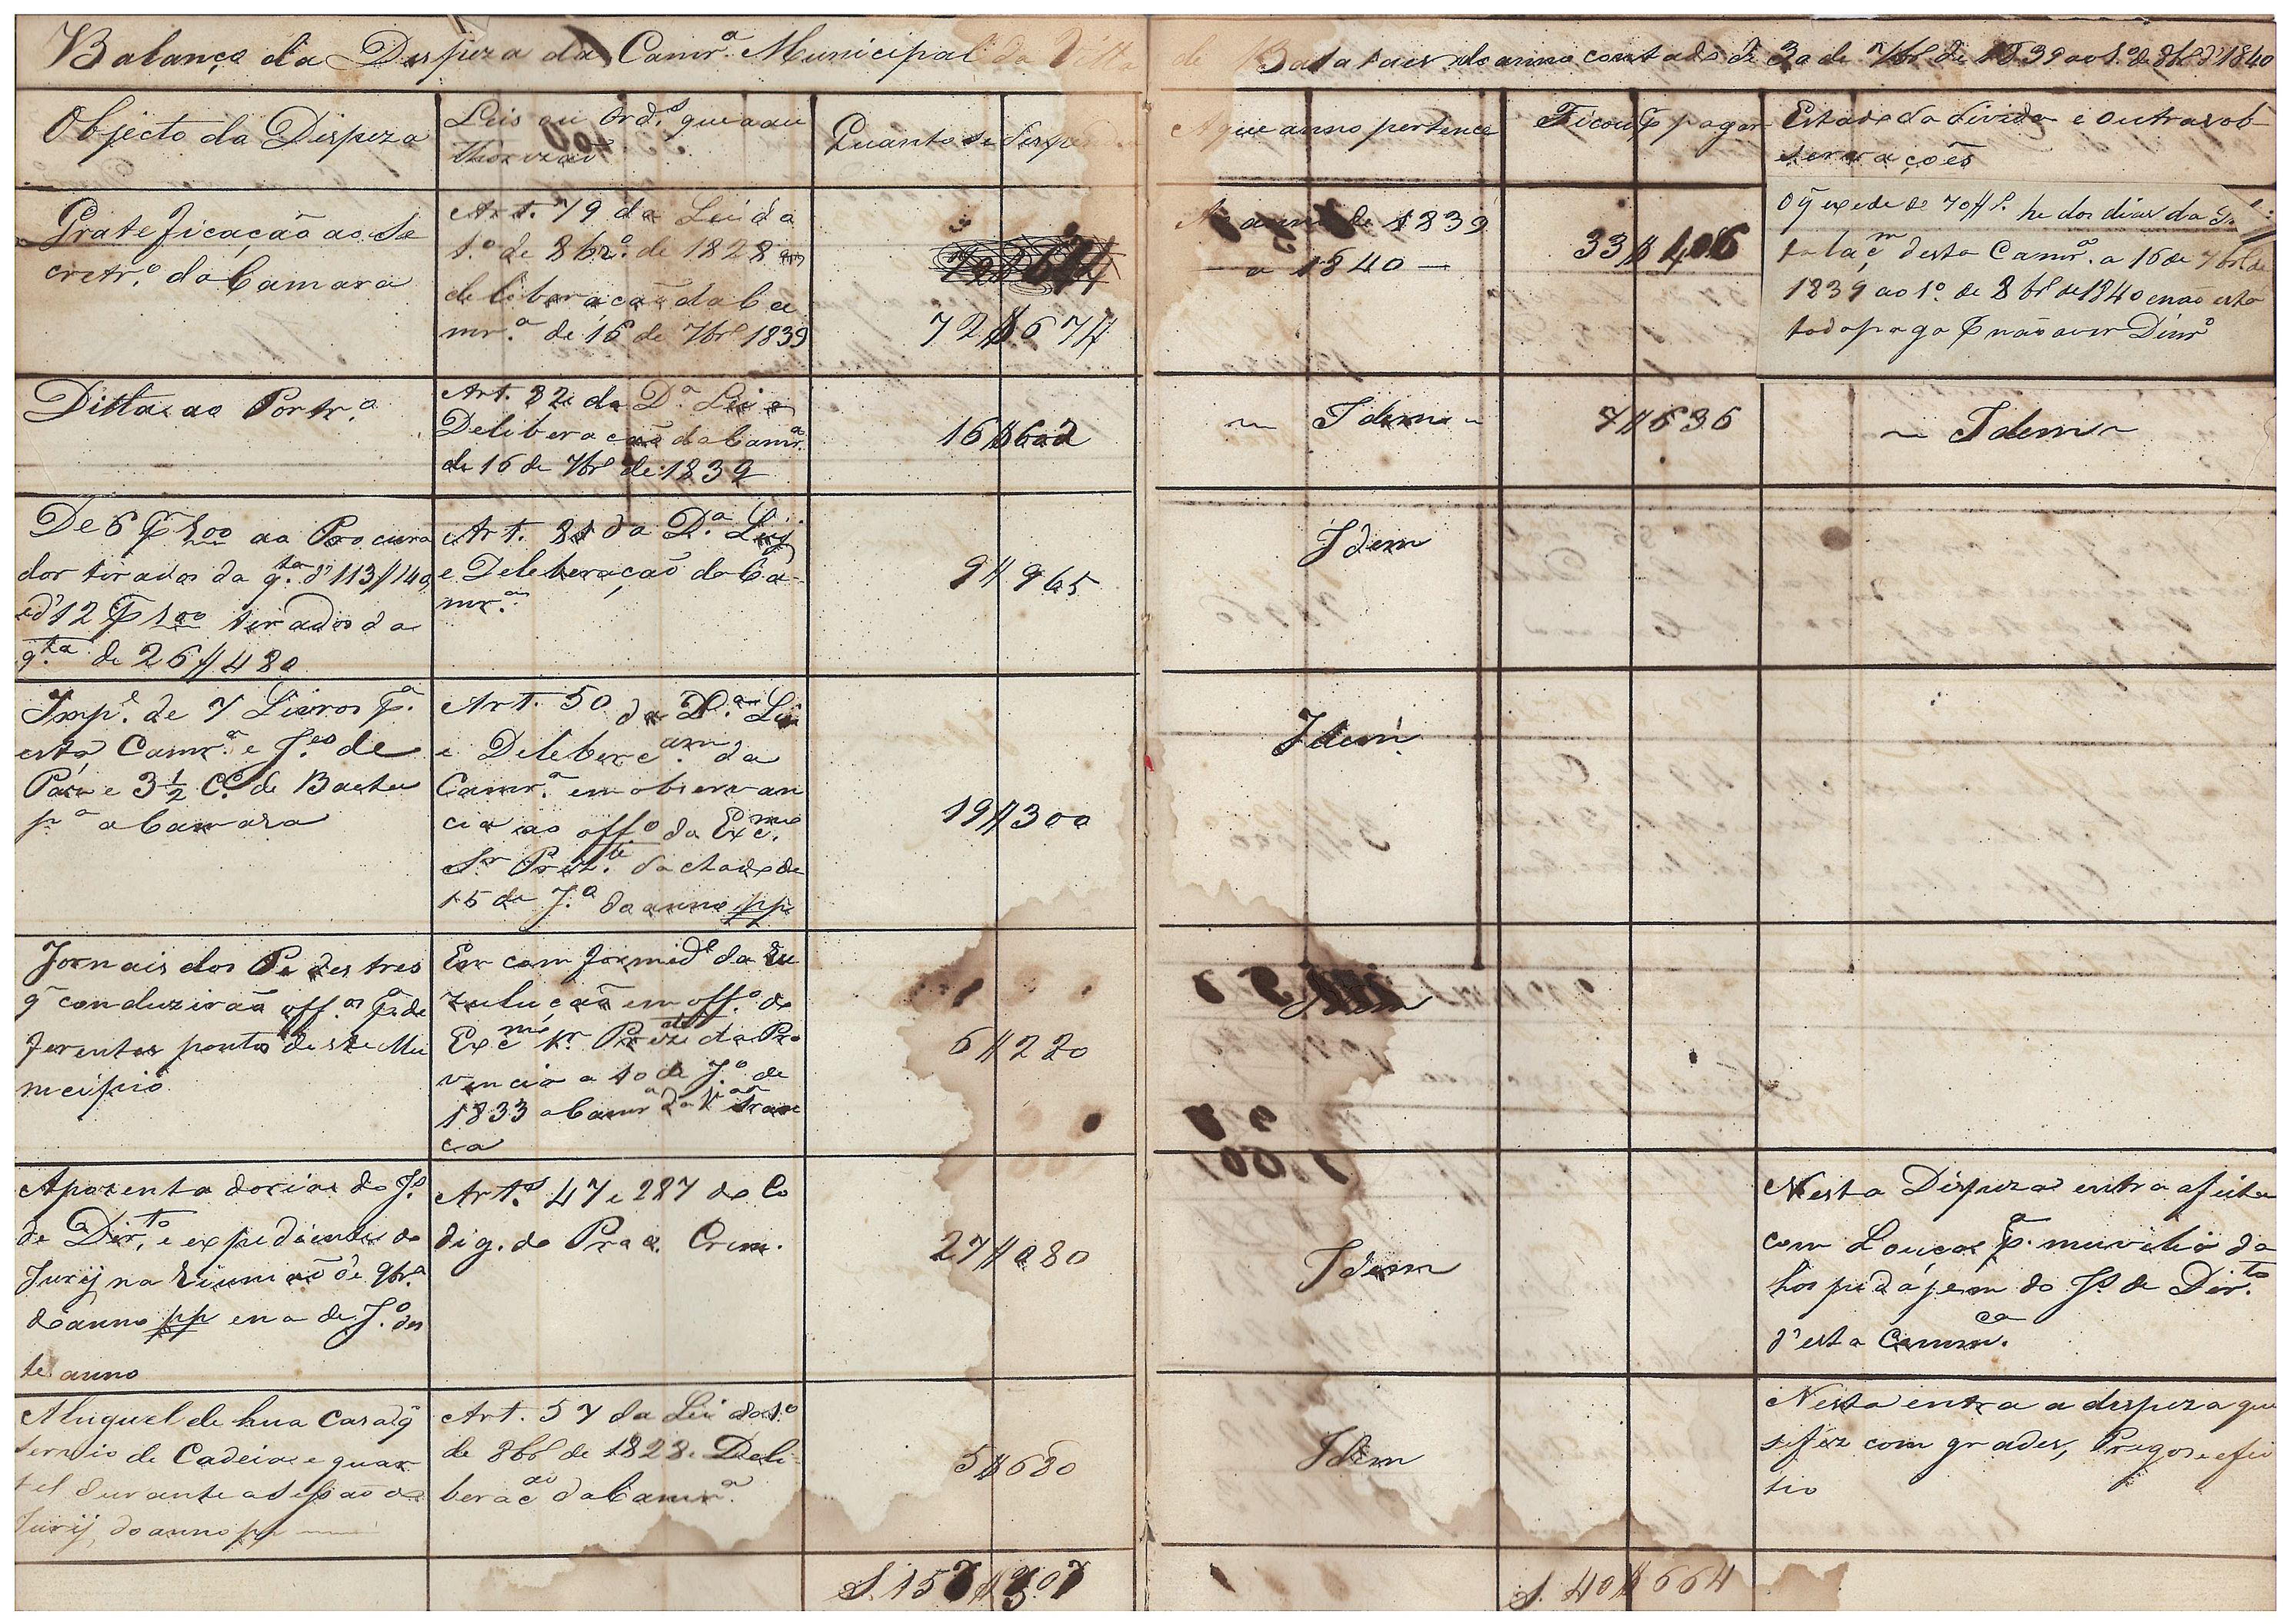 Balanço da Despeza da Camr.ª Municipal da Villa de Batataes do anno contado de 30 de 7br.º de 1839 ao 1.º de 8br.º d'1840
Objecto da Despeza
Leis ou Ord.s que a au
thorizaõ
Quanto se despendeo
A que anno pertence
Ficou pr pagar
Estado da divida e outras ob
servações
Gratificação ao Se
cretr.º da Camara
Art. 79 da Lei da
1.º de 8br.º de 1828 e
deliberação da Ca
mr.ª de 16 de 7br.º 1839
72$674
Ao anno de 1839
a 1840
33$406
O q̃ excede de 70$ he dos dias da Ins
talaçm desta Camr.ª a 16 de 7br.º de
1839 ao 1.º de 8br.º de 1840 e naõ está
todo pago pr naõ aver Dinr.º
Ditta ao Portr.º
Art. 82 da D.ª Lei e
Deliberacaõ da Camr.ª
de 16 de 7br.º de 1839
16$602
Idem
7$636
Idem
De 6 pr 100 ao Procura
dor tirados da q.tª d'113$140,
e d'12 pr 100 tirados da
q.tª de 26$480
Art. 81 da D.ª Lei
e Deleberação da Ca
mr.ª
9$965
Idem
Imp.e de 7 Livros p.ª
esta Camr.ª e J.es de
Pás e 3½ C.º de Baeta
p.ª a Camara
Art. 50 da D.ª Lei
e Deleberc.am da
Camr.ª em observan
cia ao off.º do Exc.mo
Sr. Prez.te dactado de
15 de J.º do anno pp
19$300
Idem
Jornais dos Pedestres
q̃ conduziraõ off.os p.ª de
ferentes pontos deste Mu
nicipio
Em comformid.e da Re
zulução em off.º do
Exc.mo Sr. Prezide da Pro
vencia a 10 de J.º de
1833 a Camr.ª da V.ª Fran
ca
6$220
Idem
Apozentadorias do J.s
de Dir.to, e expediente do
Jurÿ na Reuniaõ de 9br.º
do anno pp e na de J.º des
te anno
Art.s 47 e 287 do Co
dig. do Proc. Crim.
27$080
Idem
Nesta Despeza entra a feita
com Louças p.ª muvilia da
hospedajem do J.s de Dir.to
d'esta Comm.ca
Aluguel de hua Casa q̃
servio de Cadeia e quar
tel durante a sessaõ do
Jurÿ, do anno pp
Art. 57 da Lei do 1.º
de 8br.º de 1828. Deli
beraç.aõ da Camr.ª
5$680
Idem
Nesta entra a despeza que
se fez com grades, Pregos e efei
tio
S. 157$307
S. 40$664